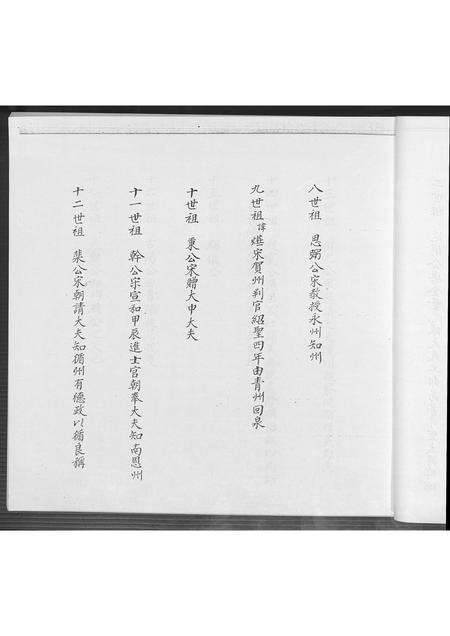 八世祖 恩弼公宋教授永州知州
九世祖諱煁宋賀州判官紹聖四年由青州回泉
十世祖 秉公宋贈大申大夫
十一世祖 幹公宗宣和甲辰進士官朝奉大夫知南恩州
十二世祖 棐公宋朝請大夫知循州有德政以循良稱